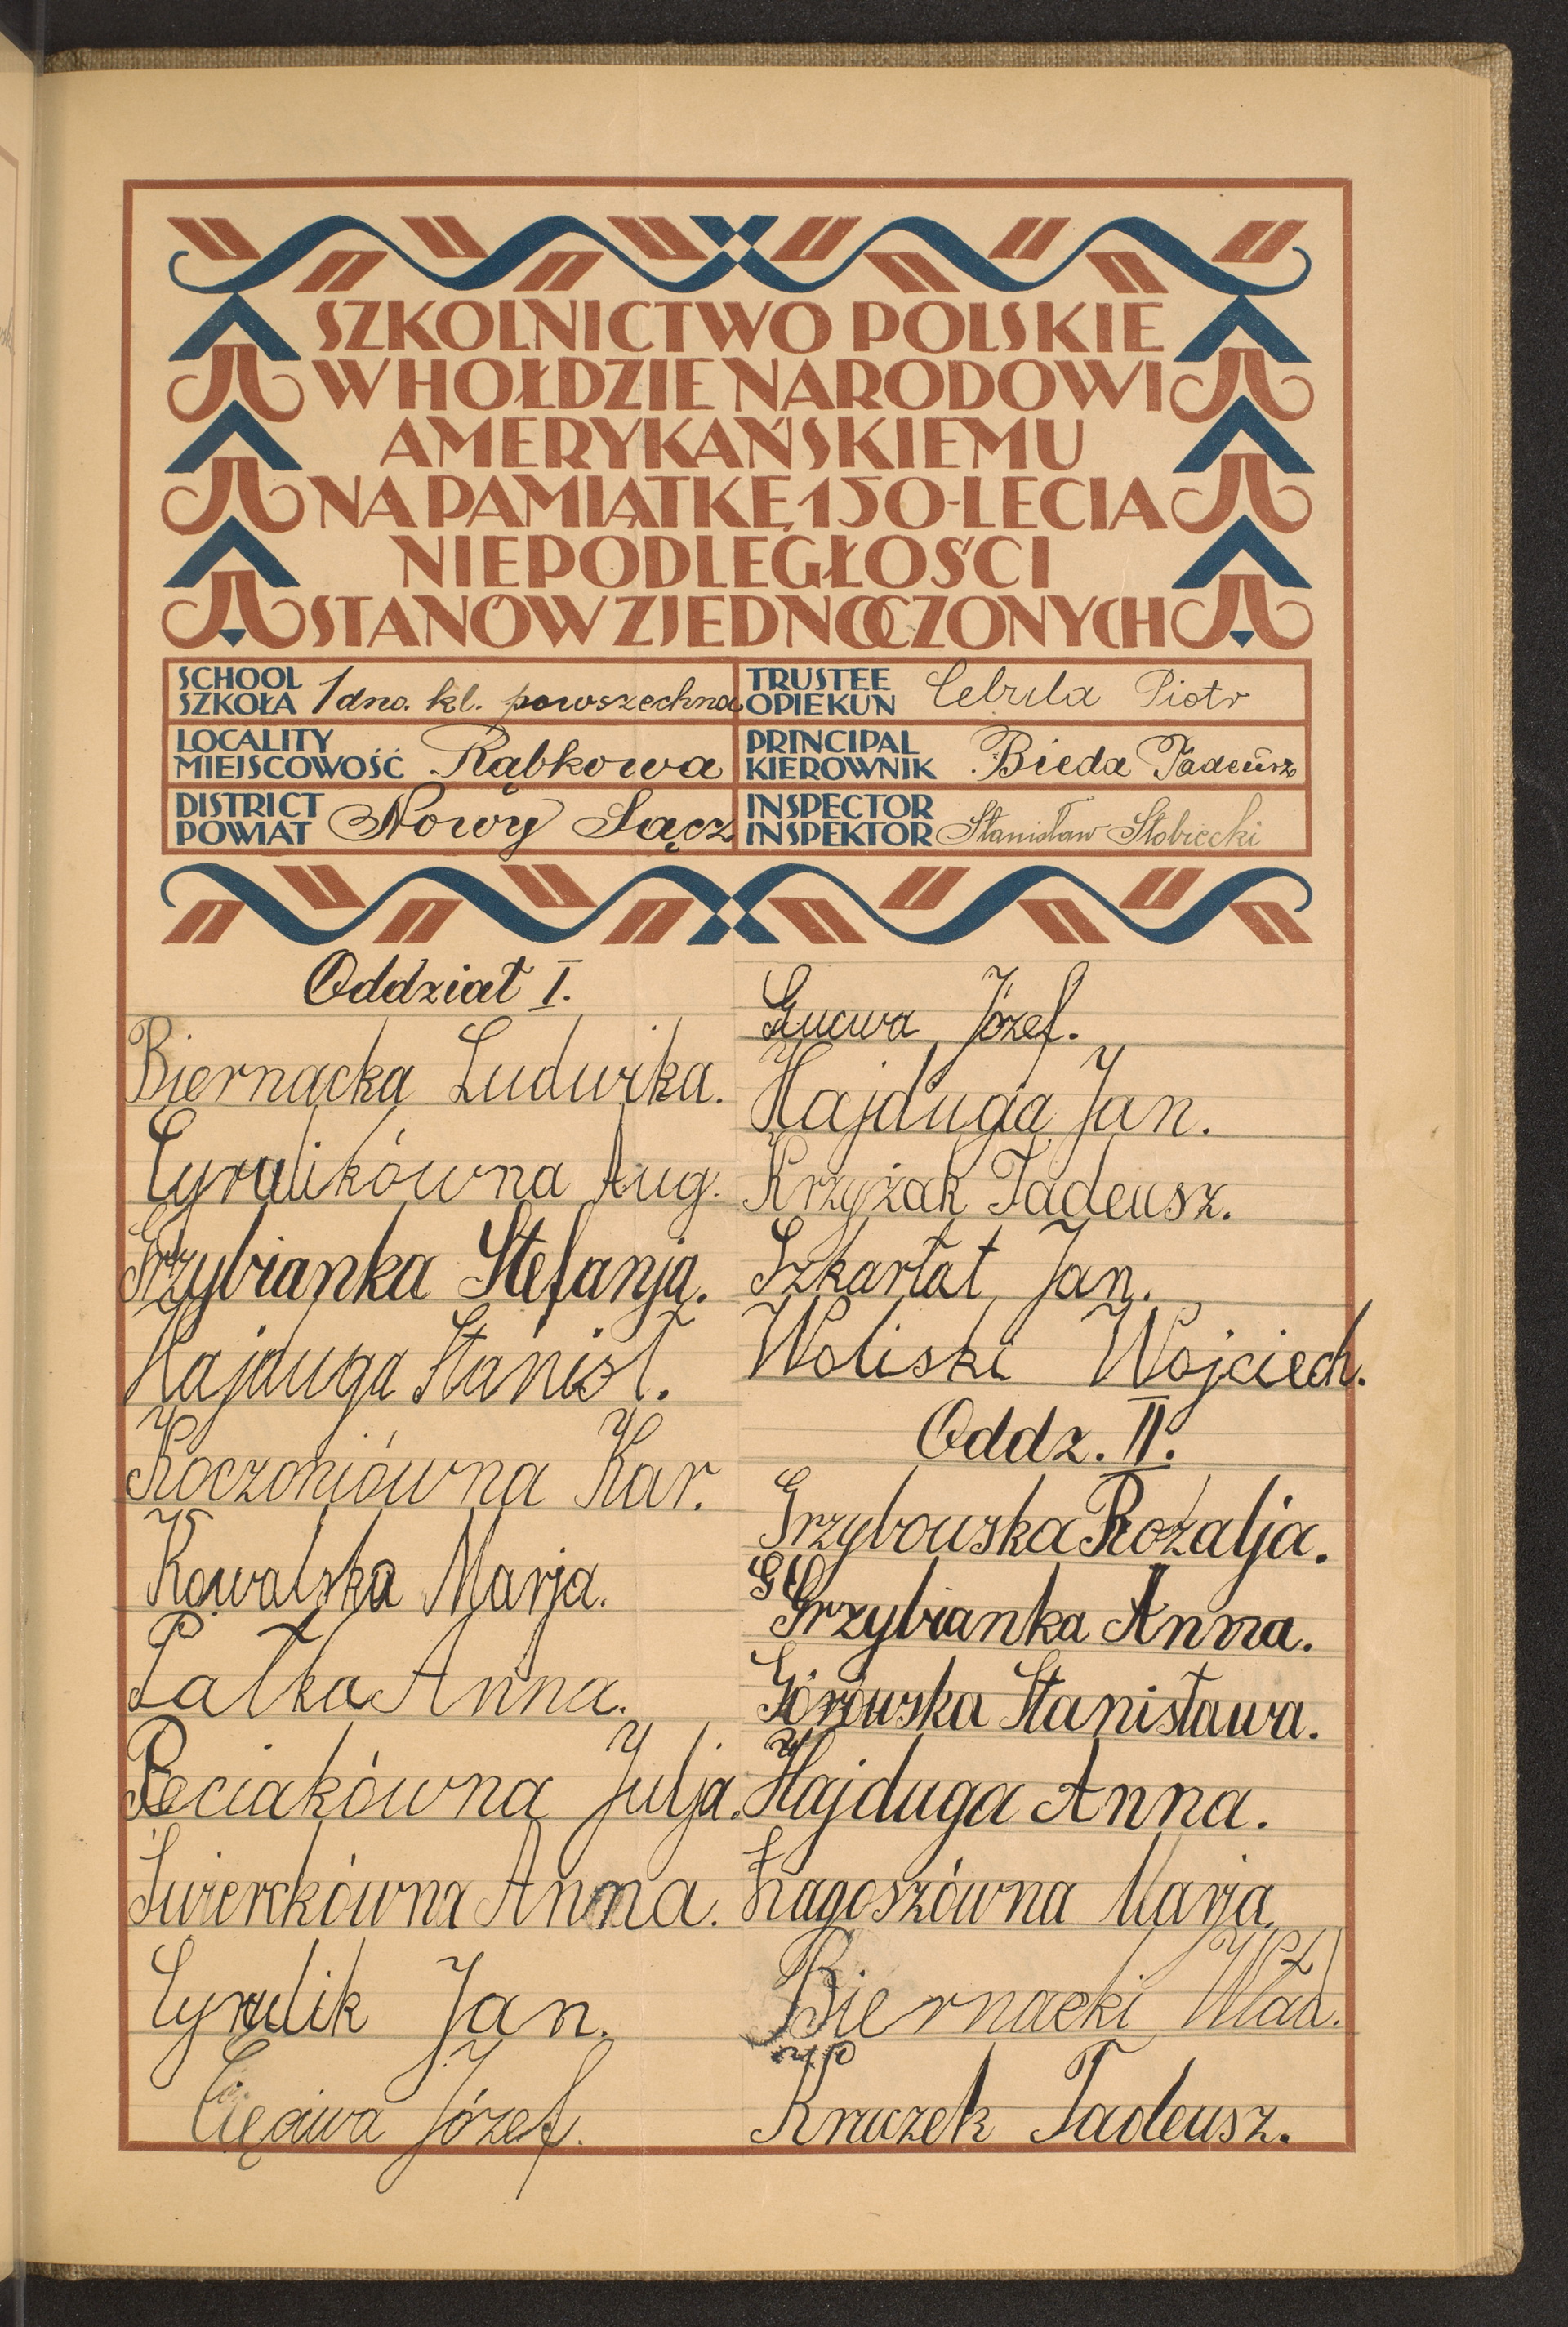 SZKOLNICTWO POLSKIE
W HOŁDZIE NARODOWI
AMERYKAŃSKIEMU
NA PAMIĄTKĘ 150-LECIA
NIEPODLEGŁOŚCI
STANÓW ZJEDNOCZONYCH
SCHOOL
SZKOŁA 1dno. kl. powszechna
TRUSTEE
OPIEKUN Cebula Piotr
LOCALITY
MIEJSCOWOŚĆ Rąbkowa
PRINCIPAL
KIEROWNIK Bieda Tadeusz
DISTRICT
POWIAT Nowy Sącz
INSPECTOR
INSPEKTOR Stanisław Słobiecki
Oddział I.
Biernacka Ludwika.
Cyrulikówna Aug.
Grzybianka Stefanja.
Hajduga Stanisł.
Koczoniówna Kar.
Kowalska Marja.
Pałka Anna.
Peciakówna Julja.
Świerckówna Anna.
Cyrulik Jan.
Cięciwa Józef.
Gucwa Józef.
Hajduga Jan.
Krzyżak Tadeusz.
Szkarłat Jan.
Woliski Wojciech.
Oddz. II.
Grzybowska Rozalja.
Grzybianka Anna.
Górowska Stanisława.
Hajduga Anna.
Łagoszówna Marja.
Biernacki Wład.
Kruczek Tadeusz.